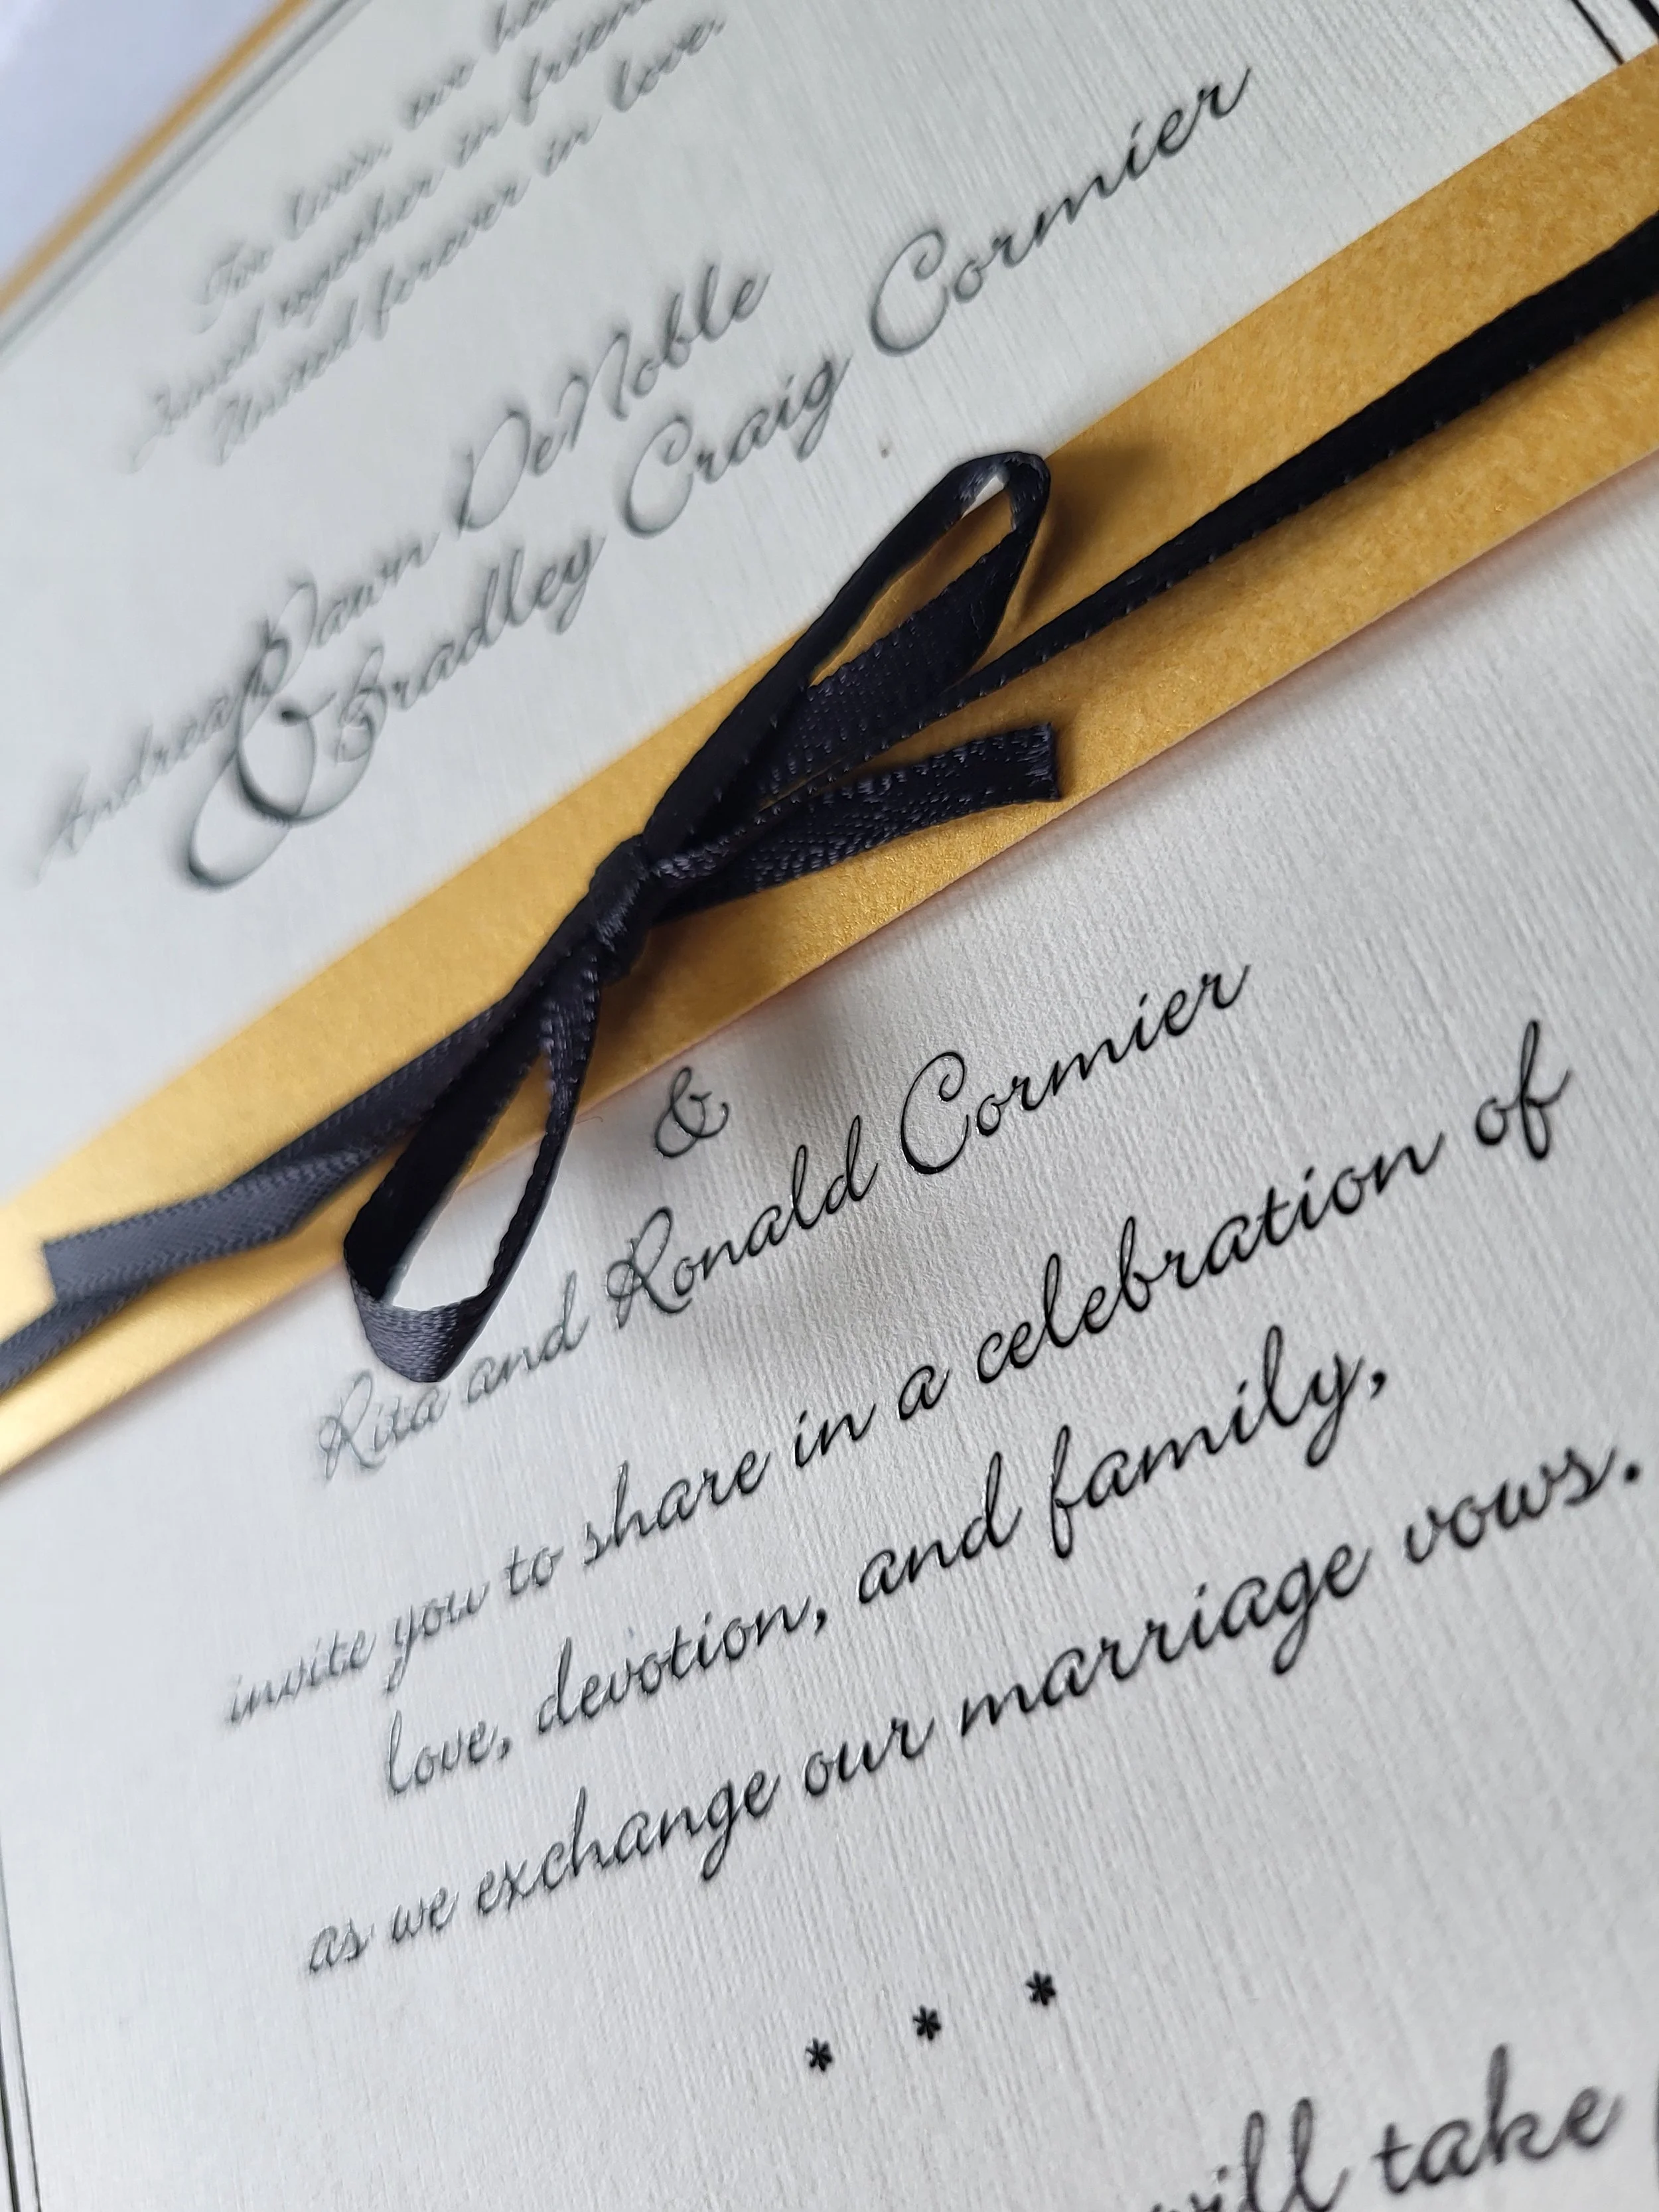 Two lives, two
Joined together in
United forever in love.
Andrea Dawn DeNoble
& Bradley Craig Cormier
&
Rita and Ronald Cormier
invite you to share in a celebration of
love, devotion, and family,
as we exchange our marriage vows.
* * *
will take